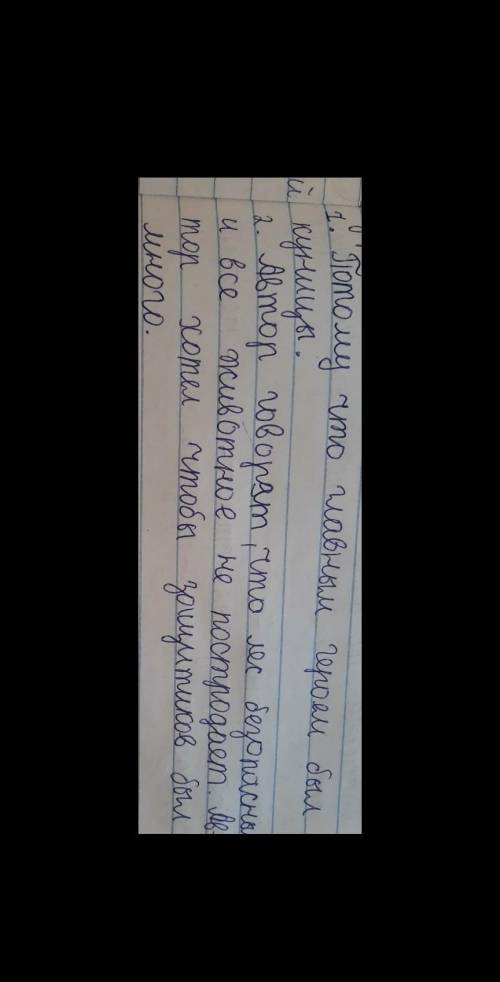 1. Потому что главным героем был
й куницы.
2. Автор говорят, что лес безопасны
и все животное не постродает. Ав-
тор хотел чтобы зощитиков был
много.